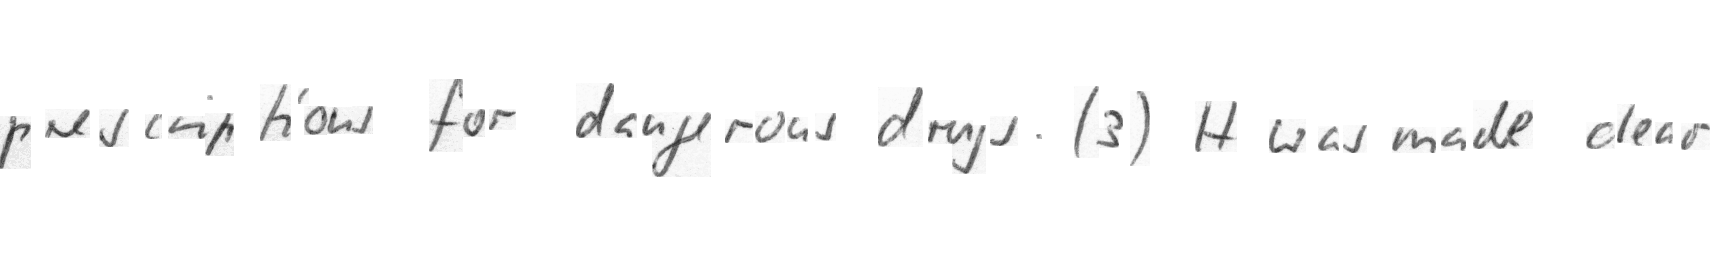 prescriptions for dangerous drugs. (3) It was made clear